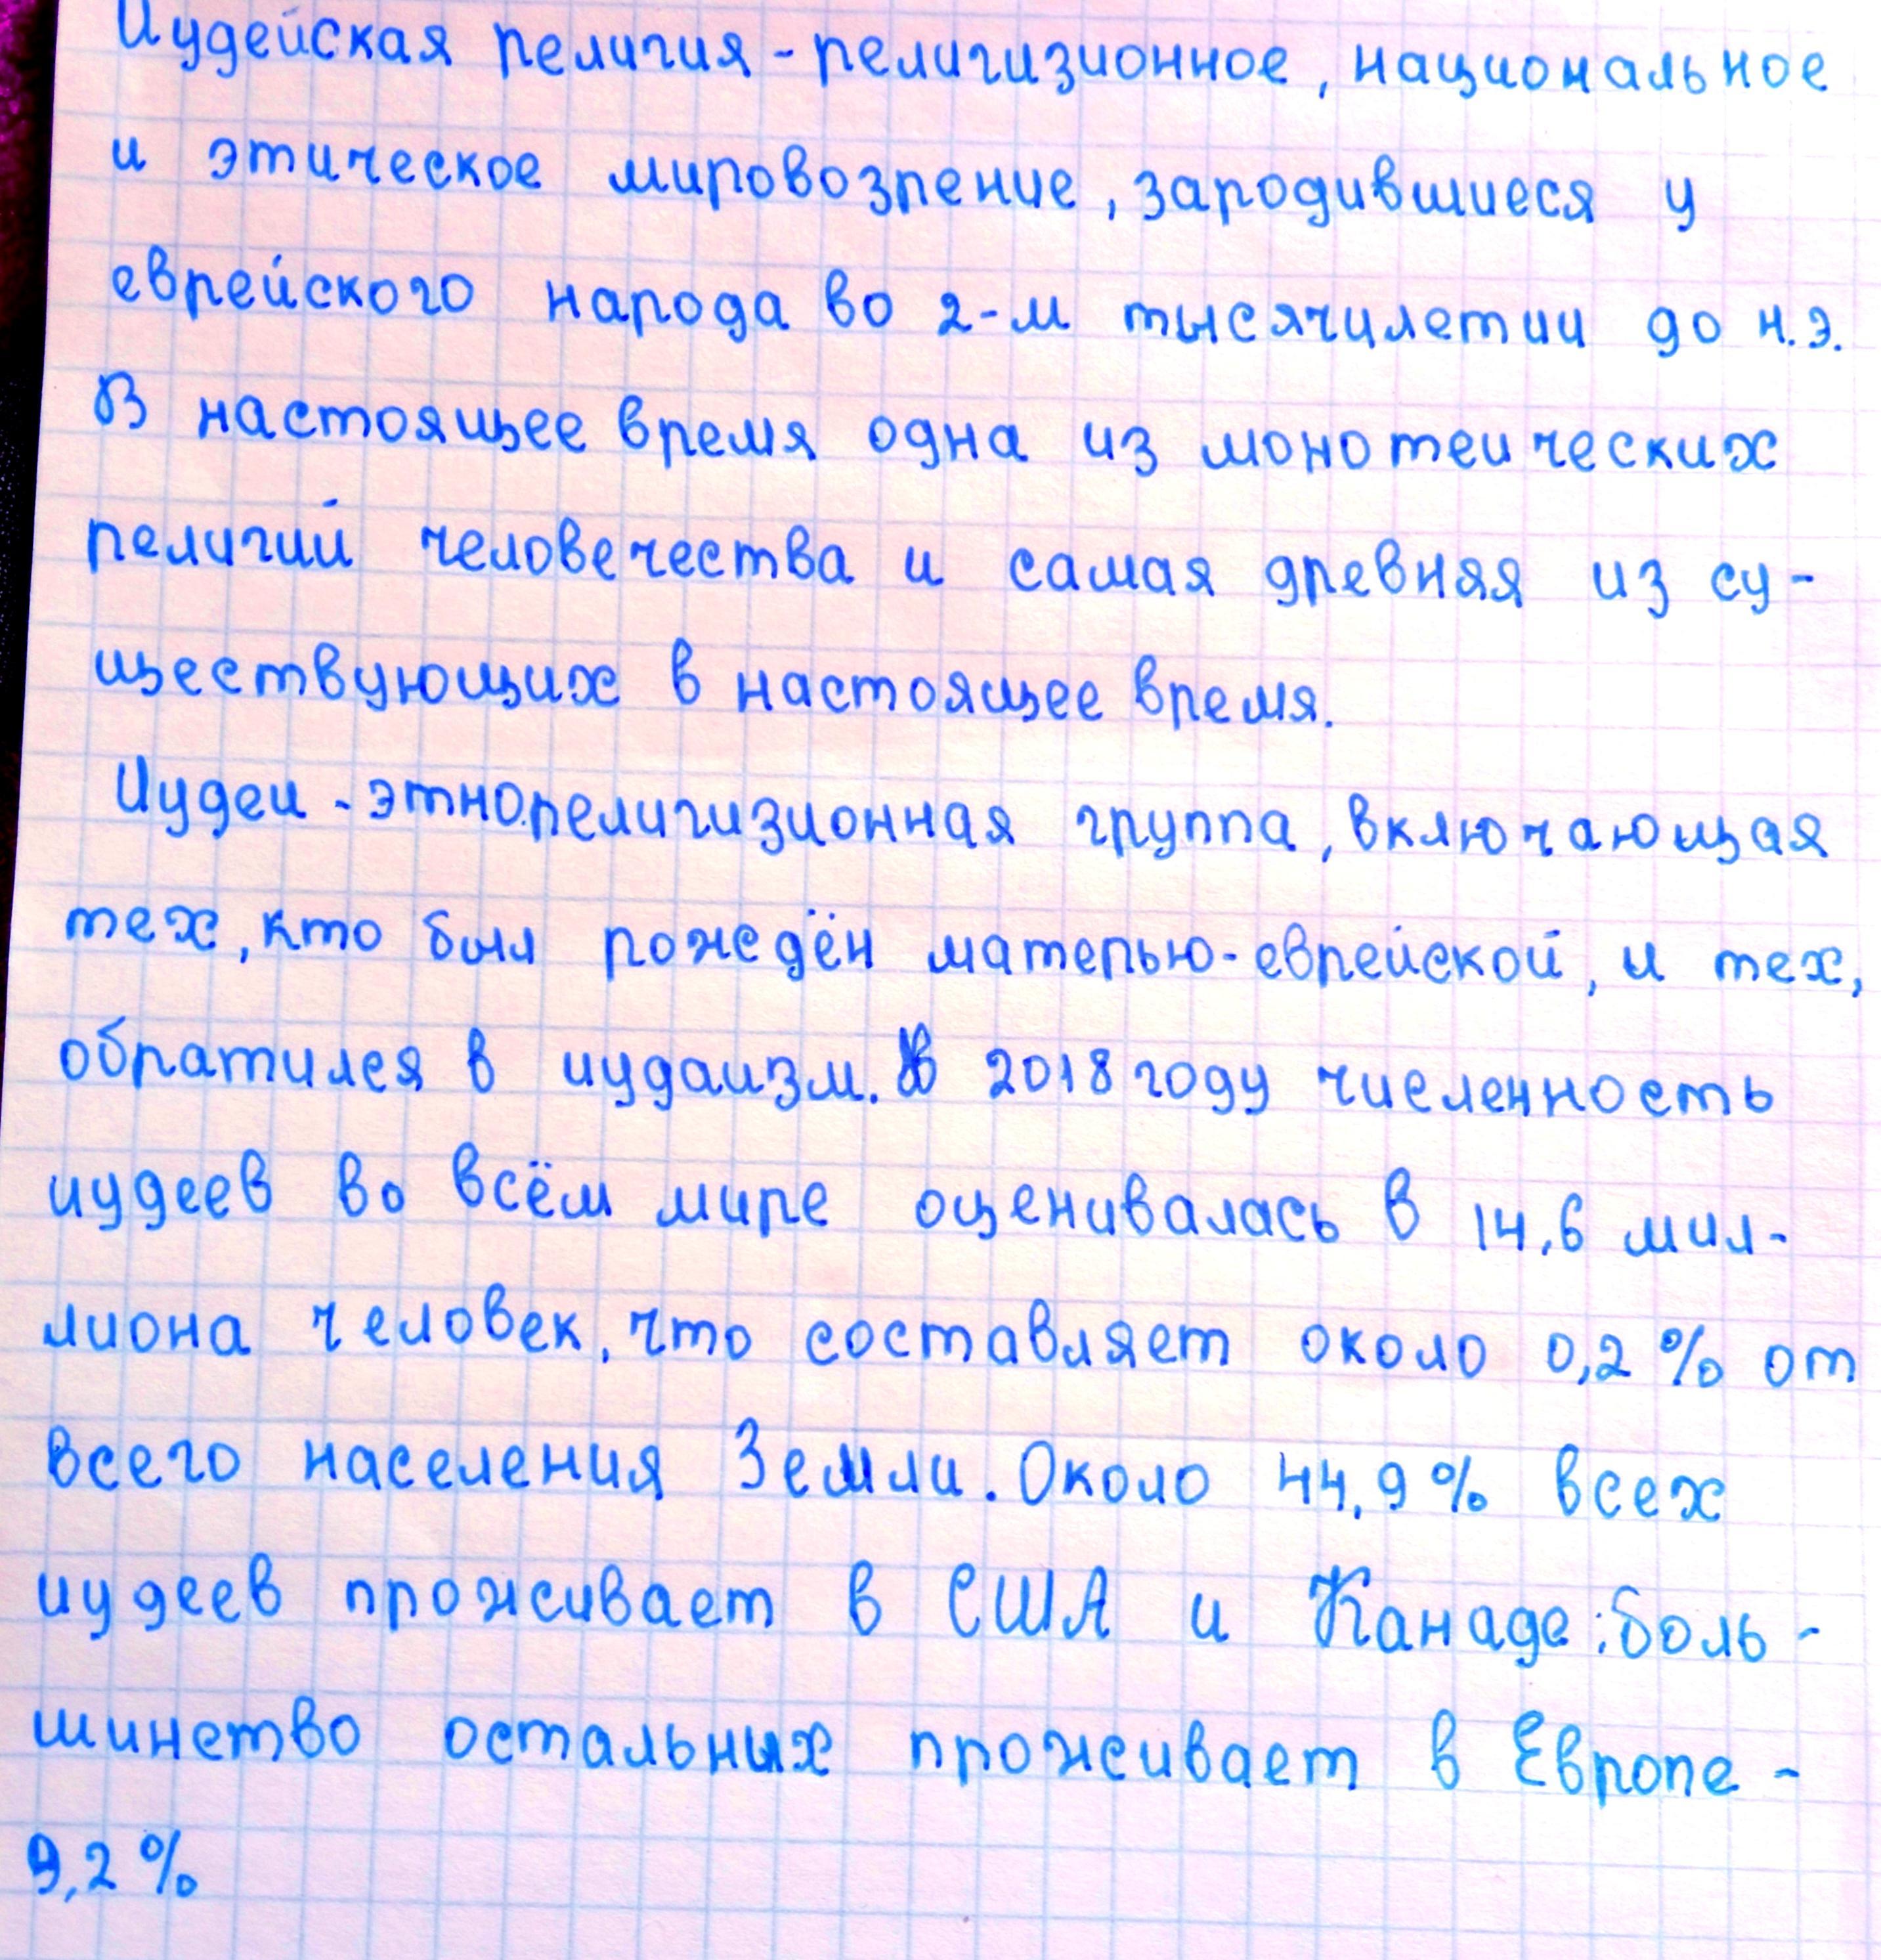 Иудейская религия - религизионное, национальное
и этическое мировозрение, зародившиеся у
еврейского народа во 2-м тысячилетии до н.э.
В настоящее время одна из монотеических
религий человечества и самая древняя из су-
ществующих в настоящее время.
Иудеи - этнорелигизионная группа, включающая
тех, кто был рождён матерью-еврейской, и тех,
обратился в иудаизм. В 2018 году численность
иудеев во всём мире оценивалась в 14,6 мил-
лиона человек, что составляет около 0,2% от
всего населения Земли. Около 44,9% всех
иудеев проживает в США и Канаде; боль-
шинство остальных проживает в Европе -
9,2%